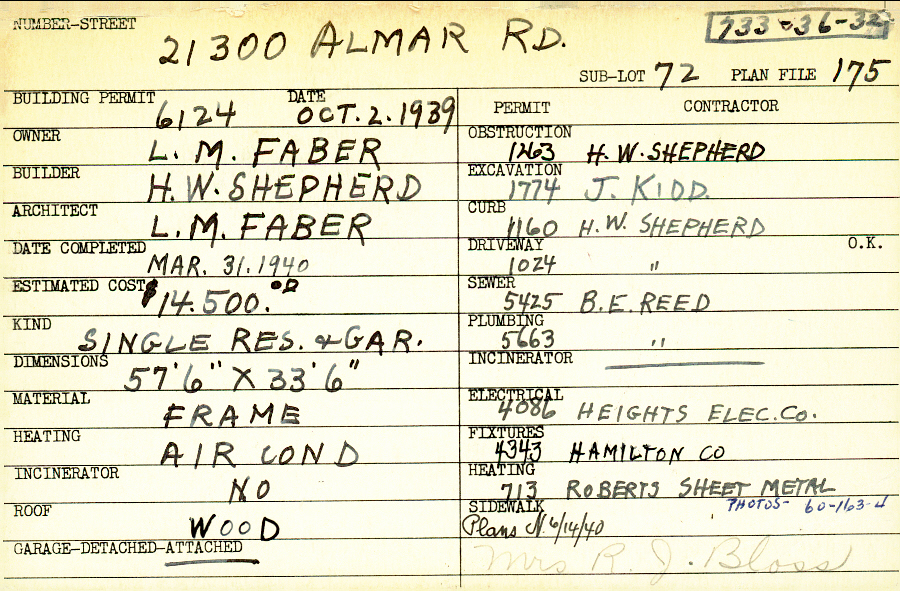 NUMBER-STREET 21300 ALMAR RD. 733-36-32
SUB-LOT 72 PLAN FILE 175
BUILDING PERMIT 6124 DATE OCT. 2. 1939
OWNER L. M. FABER
BUILDER H. W. SHEPHERD
ARCHITECT L. M. FABER
DATE COMPLETED MAR. 31. 1940
ESTIMATED COST $14.500.00
KIND SINGLE RES. & GAR.
DIMENSIONS 57'6" X 33'6"
MATERIAL FRAME
HEATING AIR COND
INCINERATOR NO
ROOF WOOD
GARAGE-DETACHED-ATTACHED
PERMIT CONTRACTOR
OBSTRUCTION 1263 H. W. SHEPHERD
EXCAVATION 1774 J. KIDD.
CURB 1160 H. W. SHEPHERD
DRIVEWAY 1024 " O.K.
SEWER 5425 B. E. REED
PLUMBING 5663 "
INCINERATOR
ELECTRICAL 4086 HEIGHTS ELEC. CO.
FIXTURES 4343 HAMILTON CO
HEATING 713 ROBERTS SHEET METAL
SIDEWALK PHOTOS- 60-163-4
Plans 6/14/40
Mrs R. J. Bloss